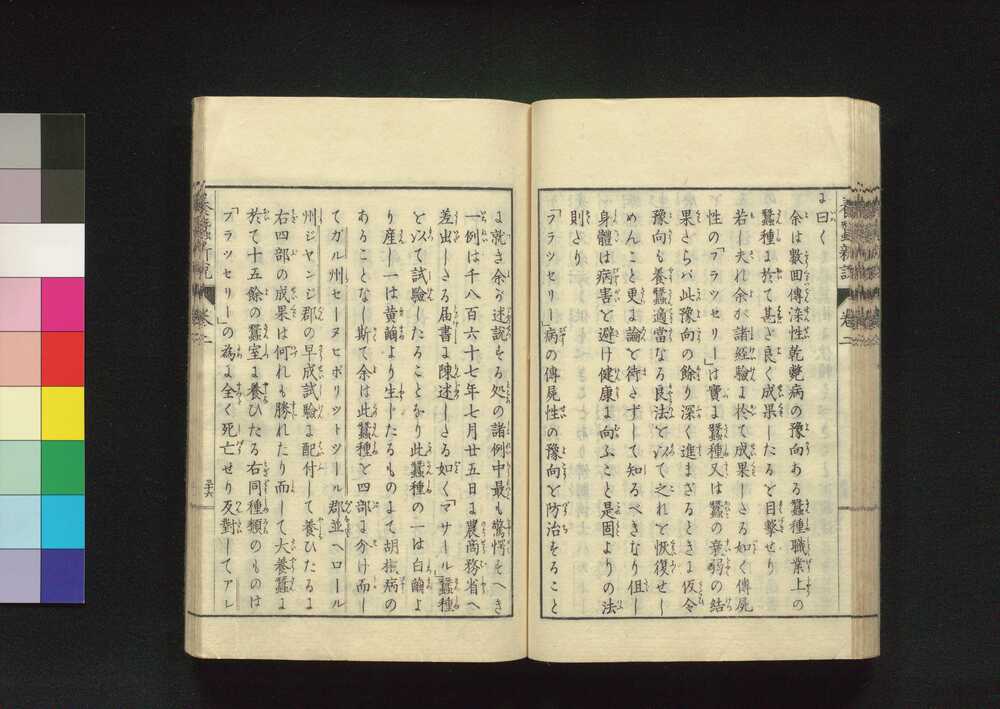 に曰く
余は數回傳染性乾斃病の豫向ある蠶種職業上の
蠶種に於て甚き良く成果したるを目撃せり
若し夫れ余が諸經驗に於て成果しさる如く傳屍
と性の「フラツセリー」は實に蠶種又は蠶の衰弱の結
果さらバ此豫向の餘り深く進まざるときは仮令
豫向も養蠶適當なる良法を以て之れを恢復せし
めんこと更に論を待さずして知るべきなり但し
身體は病害を避け健康に向ふこと是固よりの法
則さり
「フラツセリー」病の傳屍性の豫向を防治をること
に就き余が述説をる処の諸例中最も驚愕をへき
一例は千八百六十七年七月廿五日に農商務省へ
差出しさる届書に陳述しさる如く「マサール」蠶種
を以て試驗したることをり此蠶種の一は白繭よ
り産し一は黄繭より生したるものまて胡椒病の
あることなし斯て余は此蠶種を四部に分け而し
てガル州セーヌヒポリツトツール郡並ヘロール
州ジヤンジ郡の早成試驗に配付して養ひたるに
右四部の成果は何れも勝れたり而して大養蠶に
於て十五餘の蠶室に養ひたる右同種類のものは
「フラツセリー」の為に全く死亡せり反對してアレ
養蠶新説
卷二